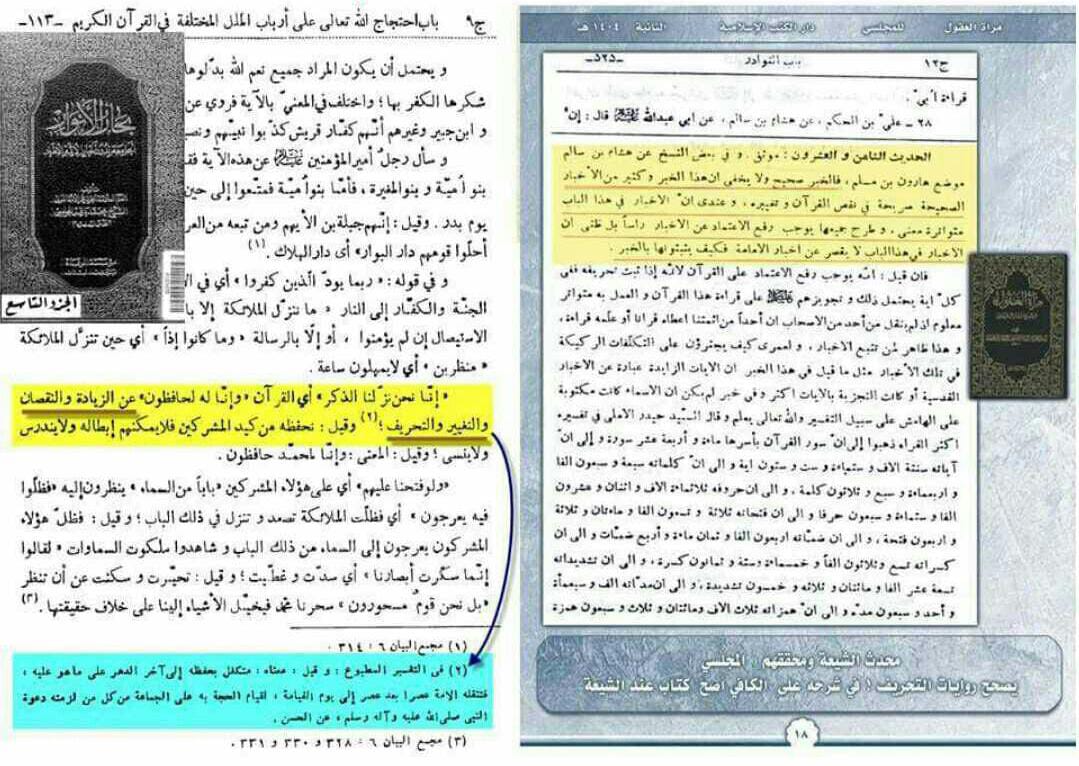 ج٩ باب احتجاج الله تعالى على أرباب الملل المختلفة في القرآن الكريم -١١٣-
و يحتمل أن يكون المراد جميع نعم الله بدّلوها
شكرها الكفر بها؛ واختلف في المعنيّ بالآية فروي عن
و ابن جبير وغيرهم أنّهم كفّار قريش كذّبوا نبيّهم
و سأل رجلٌ أمير المؤمنين عليه السلام عن هذه الآية
بنو أُميّة و بنو المغيرة، فأمّا بنو أُميّة فمتّعوا إلى حين
يوم بدر. وقيل: إنّهم جبلة بن الأيهم ومن تبعه من
أحلّوا قومهم دار البوار» أي دار الهلاك. (١)
و في قوله: «ربما يودّ الّذين كفروا» أي في
الجنّة والكفّار إلى النار «ما ننزّل الملائكة إلا
الاستيصال إن لم يؤمنوا، أو إلّا بالرسالة «وما كانوا إذاً» أي حين تنزّل الملائكة
«منظرين» أي لايمهلون ساعة.
«إنّا نحن نزّلنا الذكر» أي القرآن «وإنّا له لحافظون» عن الزيادة والنقصان
والتغيير والتحريف؛ (٢) وقيل: نحفظه من كيد المشركين فلايمكنهم إبطاله ولايندرس
ولاينسى؛ وقيل: المعنى: وإنّا لمحمّد حافظون.
«ولوفتحنا عليهم» أي على هؤلاء المشركين «باباً من السماء» ينظرون إليه «فظلّوا
فيه يعرجون» أي فظلّت الملائكة تصعد و تنزل في ذلك الباب؛ و قيل: فظلّ هؤلاء
المشركون يعرجون إلى السماء من ذلك الباب و شاهدوا ملكوت السماوات «لقالوا
إنّما سكّرت أبصارنا» أي سدّت و غطّيت؛ و قيل: تحيّرت و سكنت عن أن تنظر
«بل نحن قومٌ مسحورون» سحرنا محمّد فيخيّل الأشياء إلينا على خلاف حقيقتها. (٣)
(١) مجمع البيان ٦: ٣١٤.
(٢) في التفسير المطبوع: و قيل: معناه: متكفل بحفظه إلى آخر الدهر على ماهو عليه،
فتنقله الامة عصرا بعد عصر إلى يوم القيامة، لقيام الحجة به على الجماعة من كل من لزمته دعوة
النبي صلى الله عليه وآله وسلم، عن الحسن.
(٣) مجمع البيان ٦: ٣٢٨ و ٣٣٠ و ٣٣١.
بحار الأنوار
الجزء التاسع
مرآة العقول للمجلسي دار الكتب الإسلامية الثانية ١٤٠٤ هـ
ج١٢ باب النوادر -٥٢٥-
قراءة أبيّ.
٢٨ ـ عليّ بن الحكم، عن هشام بن سالم، عن أبي عبدالله عليه السلام قال: إنّ
الحديث الثامن و العشرون: موثق. و في بعض النسخ عن هشام بن سالم
موضع هارون بن مسلم، فالخبر صحيح ولا يخفى ان هذا الخبر وكثير من الأخبار
الصحيحة صريحة في نقص القرآن و تغييره، و عندي انّ الاخبار في هذا الباب
متواترة معنى، و طرح جميعها يوجب رفع الاعتماد عن الاخبار رأساً بل ظنى ان
الاخبار في هذا الباب لا يقصر عن اخبار الامامة فكيف يثبتونها بالخبر.
فان قيل: انّه يوجب رفع الاعتماد على القرآن لانّه إذا ثبت تحريفه ففى
كلّ اية يحتمل ذلك و تجويزهم عليهم السلام على قراءة هذا القرآن و العمل به متواتر
معلوم اذ لم ينقل من أحد من الاصحاب ان أحداً من ائمتنا اعطاه قرانا أو علّمه قراءة،
و هذا ظاهر لمن تتبع الاخبار، و لعمرى كيف يجترؤن على التكلّفات الركيكة
في تلك الأخبار مثل ما قيل في هذا الخبر ان الايات الزايدة عبارة عن الاخبار
القدسية أو كانت التجزية بالايات اكثر و في خبر لم يكن ان الاسماء كانت مكتوبة
على الهامش على سبيل التفسير والله تعالى يعلم و قال السيّد حيدر الاملي في تفسيره
اكثر القراء ذهبوا إلى انّ سور القرآن بأسرها مائة و أربعة عشر سورة و إلى انّ
آياته ستة الاف و ستمائة و ست و ستون اية و الى انّ كلماته سبعة و سبعون الفا
و اربعمائة و سبع و ثلاثون كلمة، و الى ان حروفه ثلاثمائة الاف و اثنان و عشرون
الفا و ستمائة و سبعون حرفا و الى ان فتحاته ثلاثة و تسعون الفا و مائتان و ثلاثة
و اربعون فتحة، و الى ان ضمّاته اربعون الفا و ثمان مائة و أربع ضمّات و الى ان
كسراته تسع و ثلاثون الفاً و خمسمائة وستة و ثمانون كسرة، و الى ان تشديداته
تسعة عشر الفا و مائتان و ثلاثه و خمسون تشديدة، و الى ان مدّاته الف و سبعمأة
و أحد و سبعون مدّه و الى انّ همزاته ثلاث الاف ومائتان و ثلاث و سبعون همزة
محدث الشيعة ومحققهم: المجلسي
يصحح روايات التحريف؛ في شرحه على الكافي اصح كتاب عند الشيعة
١٨